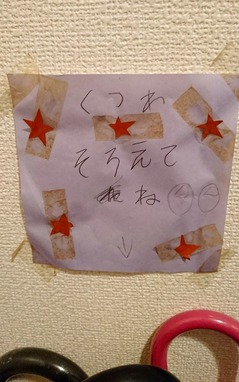 くつわ
そろえて
ね
↓